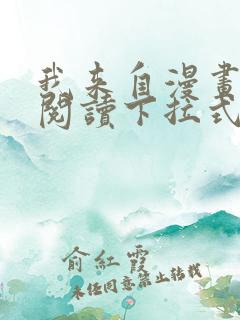 我来自漫畫
閱讀下拉式
俞紅霞
未任同意禁止转載